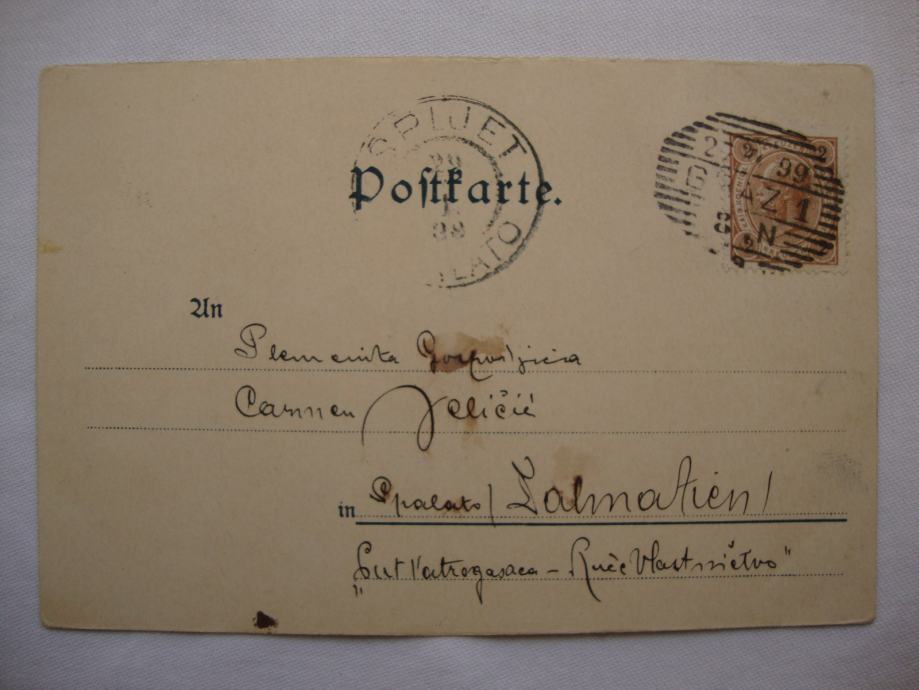 SPLJET
29
99
SPALATO
Postkarte.
2 2
99
AZ 1
8 N
2 2
An
Plemenita Gospodjica
Carmen Jeličić
in Spalato / Dalmatien /
„Put Vatrogasaca – Kuće Vlastničtvo"